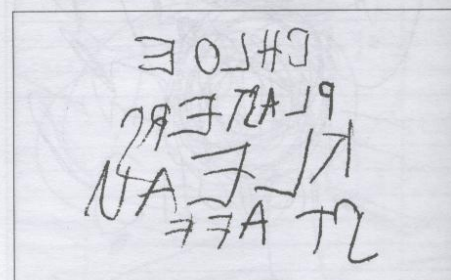 CHLOE
PLASTERS
KLEAN
STAFF